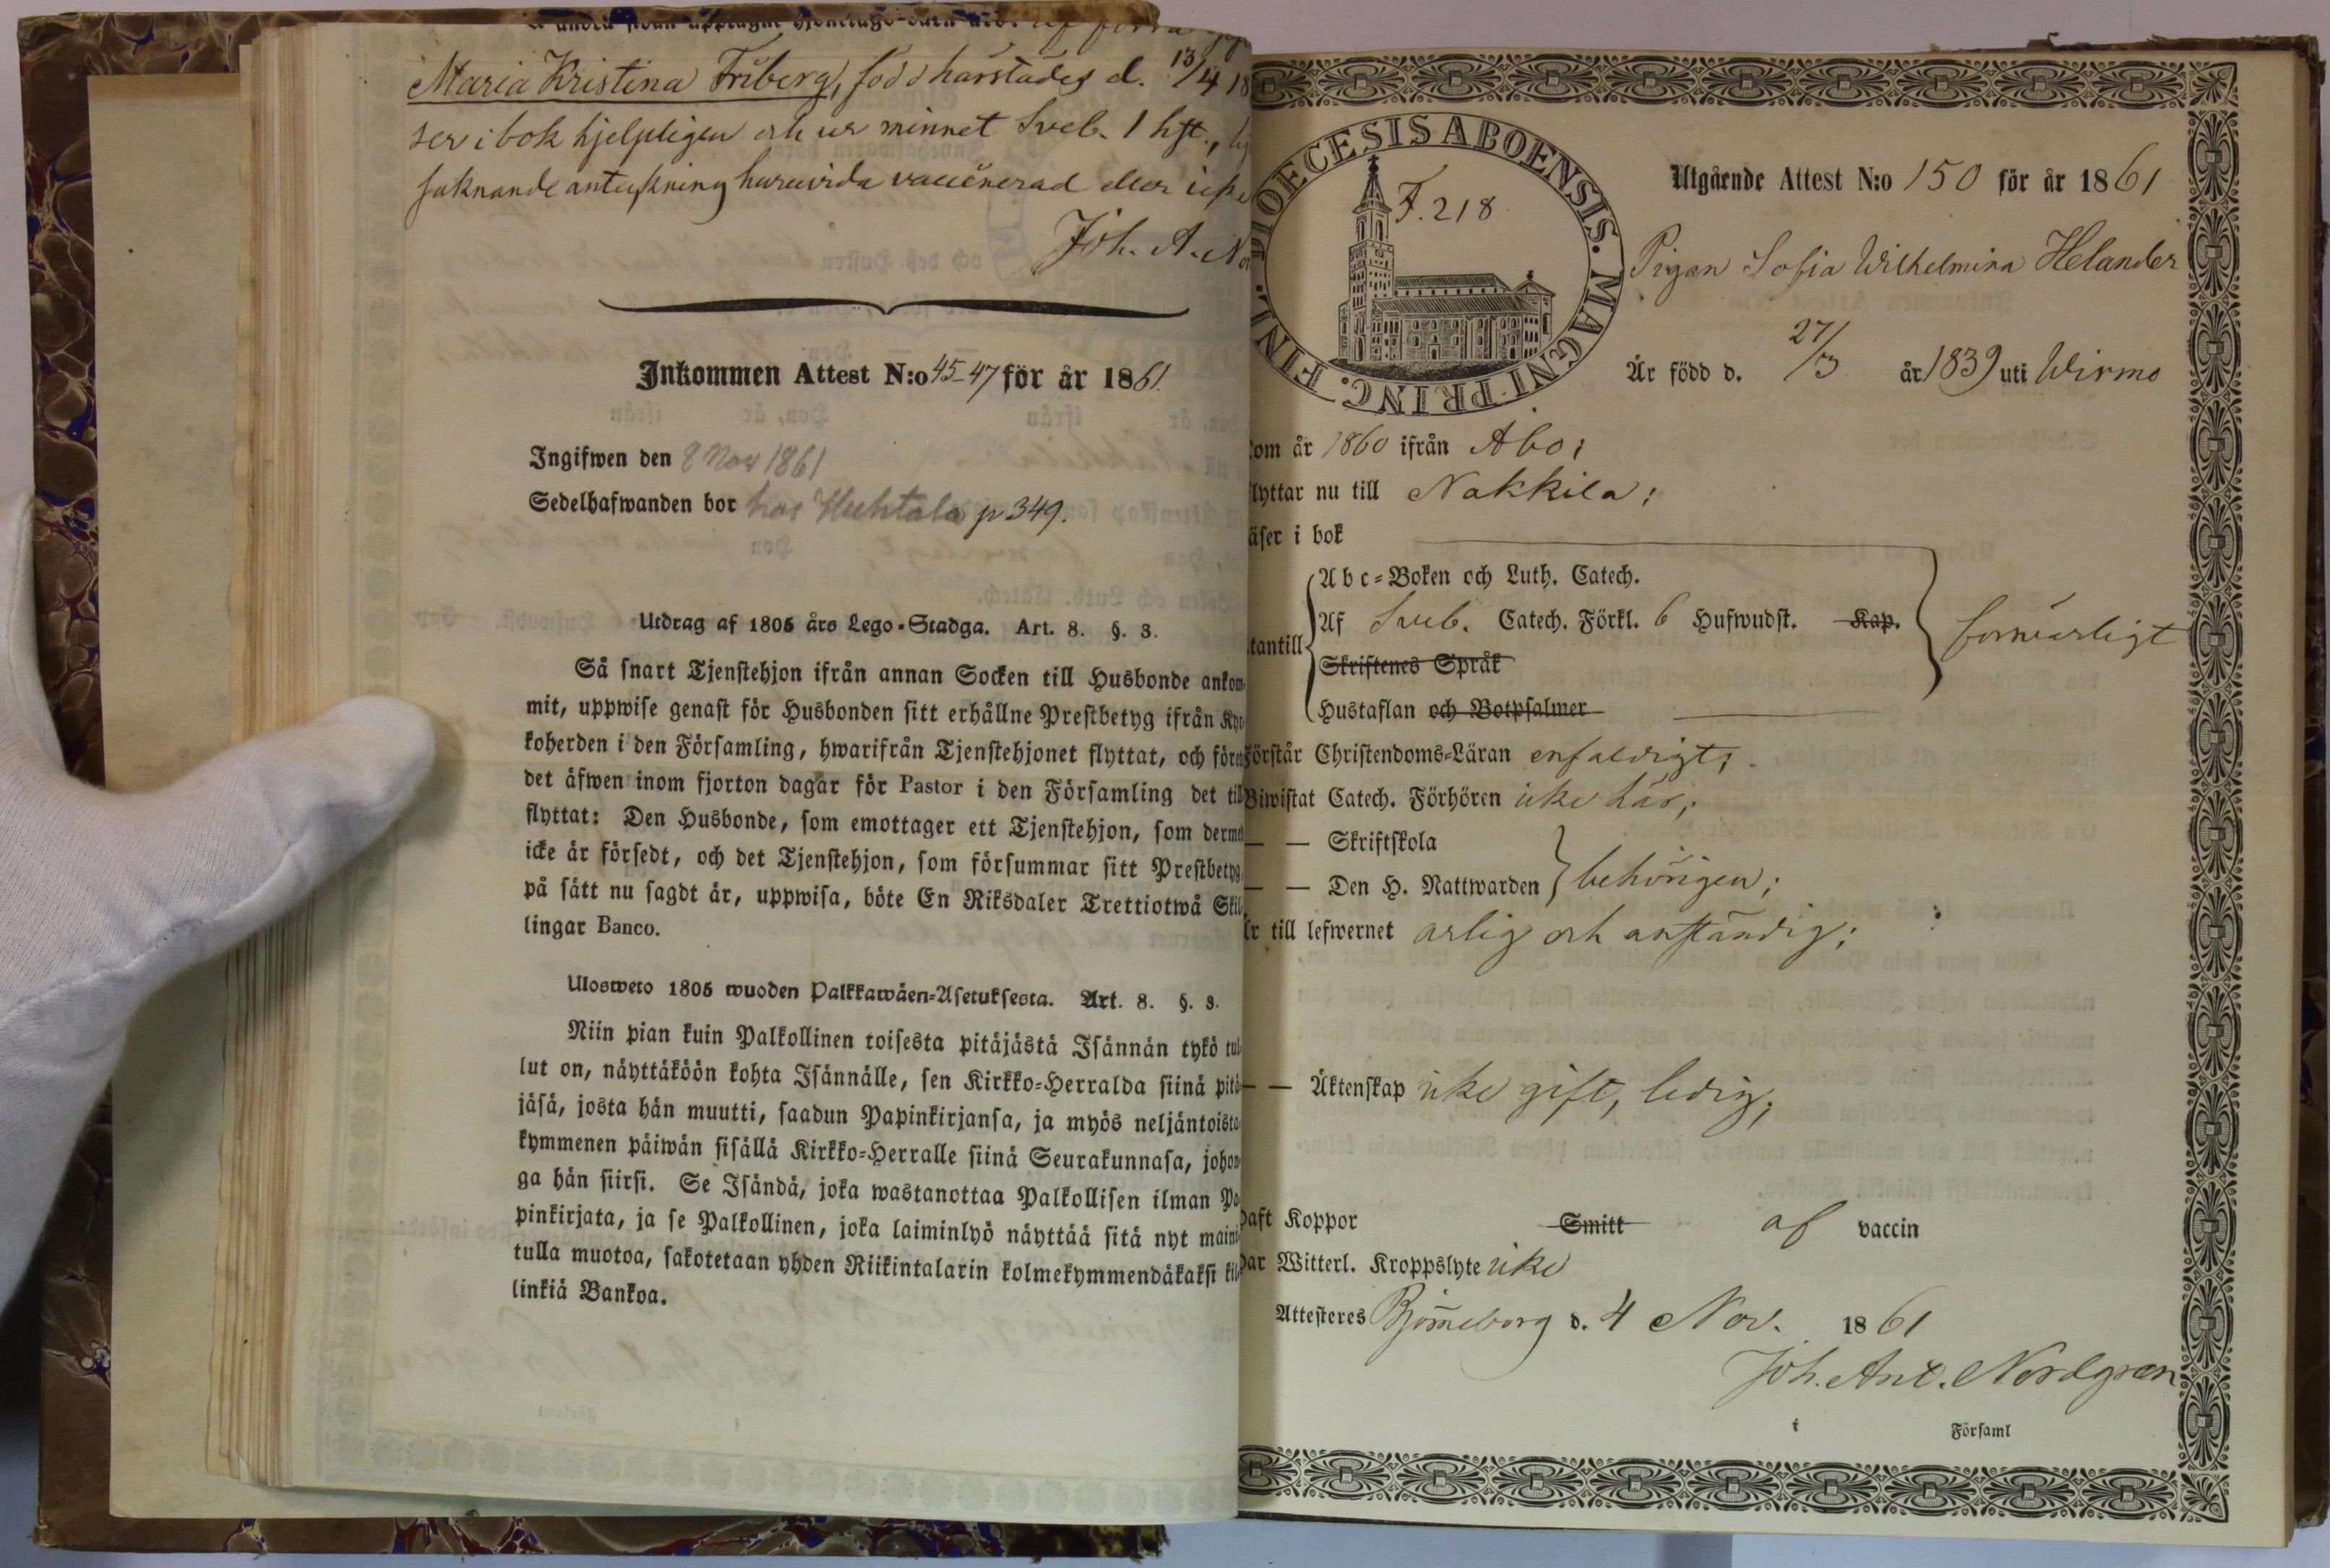 å andra sidan upptagne
Maria Kristina Friberg, född härstädes d. 13/4 18
ser i bok hjelpligen och ur minnet Sveb. 1 hft.,
saknande anteckning huruvida vaccinerad eller icke
Joh. A. No
Inkommen Attest N:o 45-47 för år 1861.
Ingifwen den 8 Nov 1861
Sedelhafwanden bor hos Huhtala p 349.
Utdrag af 1805 års Lego-Stadga. Art. 8. §. 3.
Så snart Tjenstehjon ifrån annan Socken till Husbonde ankom-
mit, uppwise genast för Husbonden sitt erhållne Prestbetyg ifrån Kyr
koherden i den Församling, hwarifrån Tjenstehjonet flyttat, och före
det äfwen inom fjorton dagar för Pastor i den Församling det til
flyttat: Den Husbonde, som emottager ett Tjenstehjon, som derme
icke är försedt, och det Tjenstehjon, som försummar sitt Prestbetyg,
på sätt nu sagdt är, uppwisa, böte En Riksdaler Trettiotwå Skil
lingar Banco.
Ulosweto 1805 wuoden Palkkawäen-Asetuksesta. Art. 8. §. 3.
Niin pian kuin Palkollinen toisesta pitäjästä Isännän tykö tul-
lut on, näyttäköön kohta Isännälle, sen Kirkko-Herralda siinä pitä
jäsä, josta hän muutti, saadun Papinkirjansa, ja myös neljäntoista
kymmenen päiwän sisällä Kirkko-Herralle siinä Seurakunnasa, johon
ga hän siirsi. Se Isändä, joka wastanottaa Palkollisen ilman Pa
pinkirjata, ja se Palkollinen, joka laiminlyö näyttää sitä nyt maini
tulla muotoa, sakotetaan yhden Riikintalarin kolmekymmendäkaksi kil
linkiä Bankoa.
DIOECESIS ABOENSIS. MAGNI PRINC. FINL.
F. 218
Utgående Attest N:o 150 för år 1861
Pigan Sofia Wilhelmina Helander
Är född d. 27/3 år 1839 uti Wirmo
om år 1860 ifrån Åbo;
lyttar nu till Nakkila;
äser i bok
Abc-Boken och Luth. Catech.
tantill Af Sveb. Catech. Förkl. 6 Hufwudst. Kap. försvarligt
Skriftenes Språk
Hustaflan och Botpsalmer
Förstår Christendoms-Läran enfaldigt;
Biwistat Catech. Förhören icke här;
— — Skriftskola
— — Den H. Nattwarden behörigen;
Är till lefwernet ärlig och anständig;
— — Äktenskap icke gift, ledig;
haft Koppor Smitt af vaccin
Har Witterl. Kroppslyte icke
Attesteres Björneborg d. 4 Nov. 1861
Joh. Ant. Nordgren
i Församl